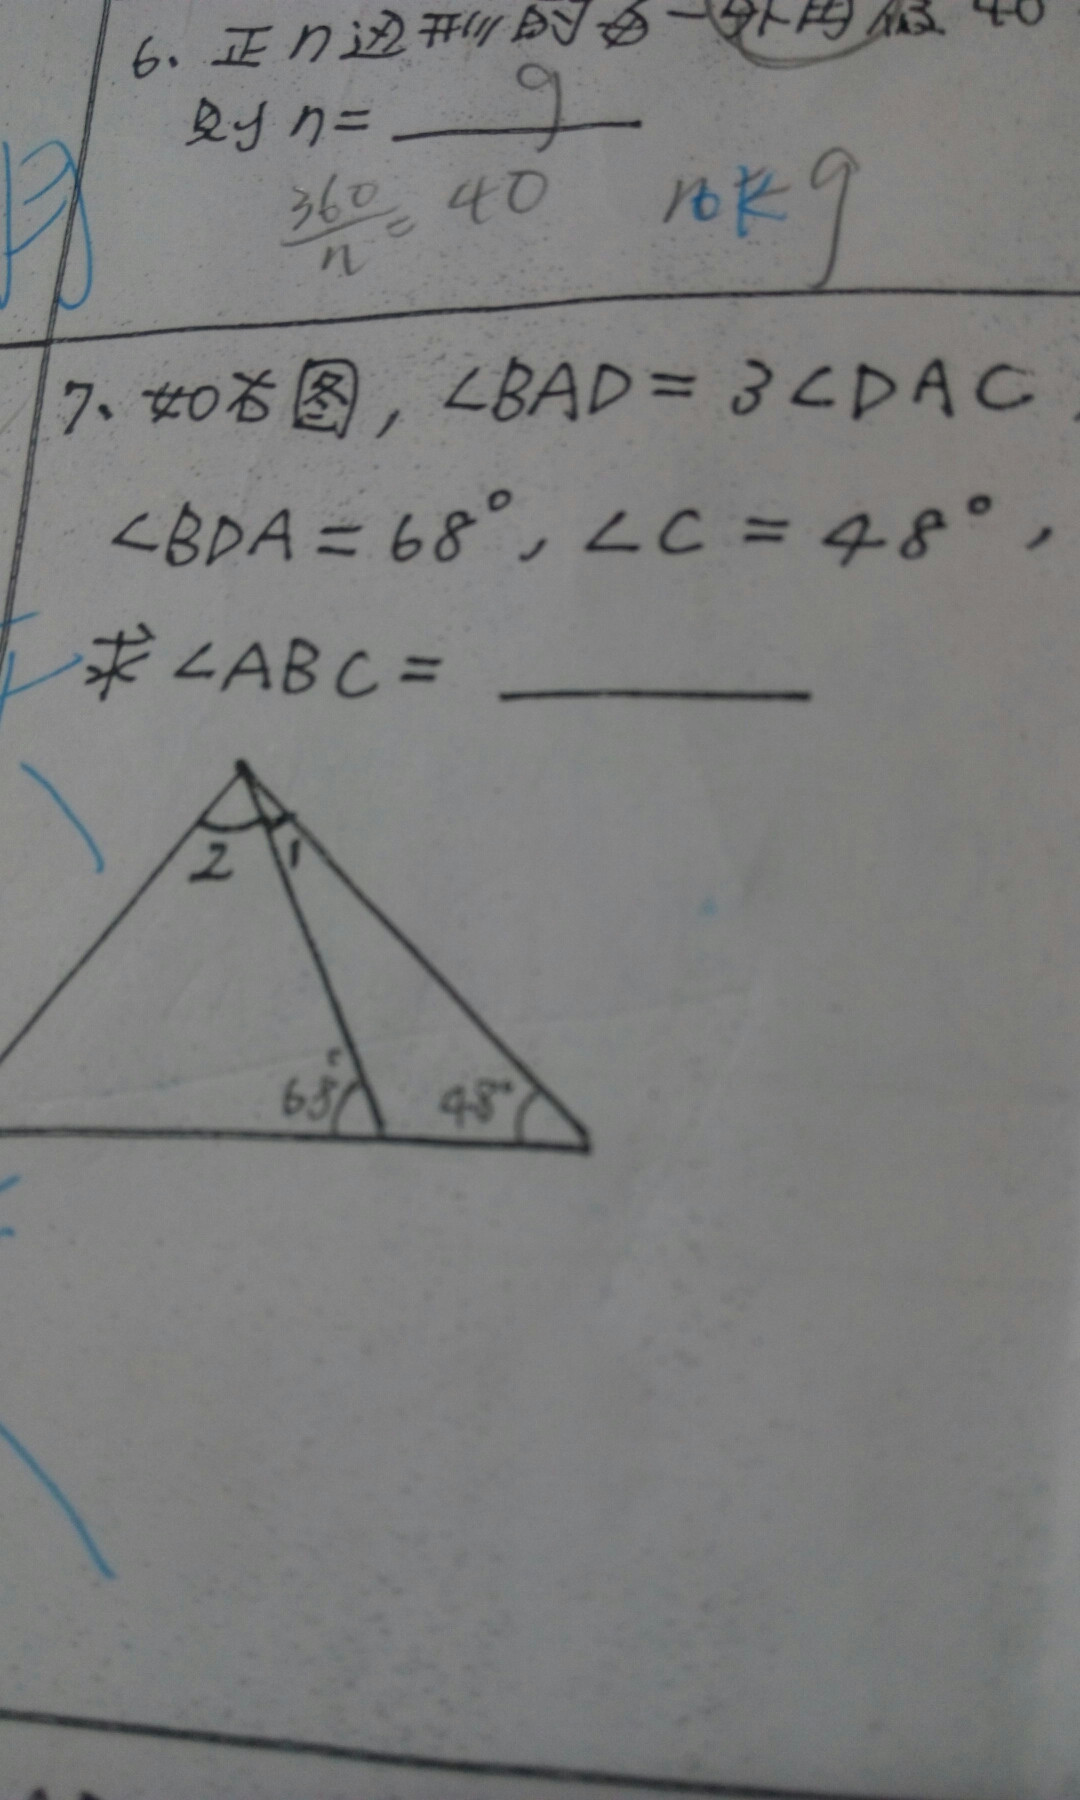 6. 正n边形的每一外角假 40
则 n = 9
360/n = 40 n=9
7. 如右图, ∠BAD = 3∠DAC,
∠BDA = 68°, ∠C = 48°,
求 ∠ABC =
2 1
68° 48°